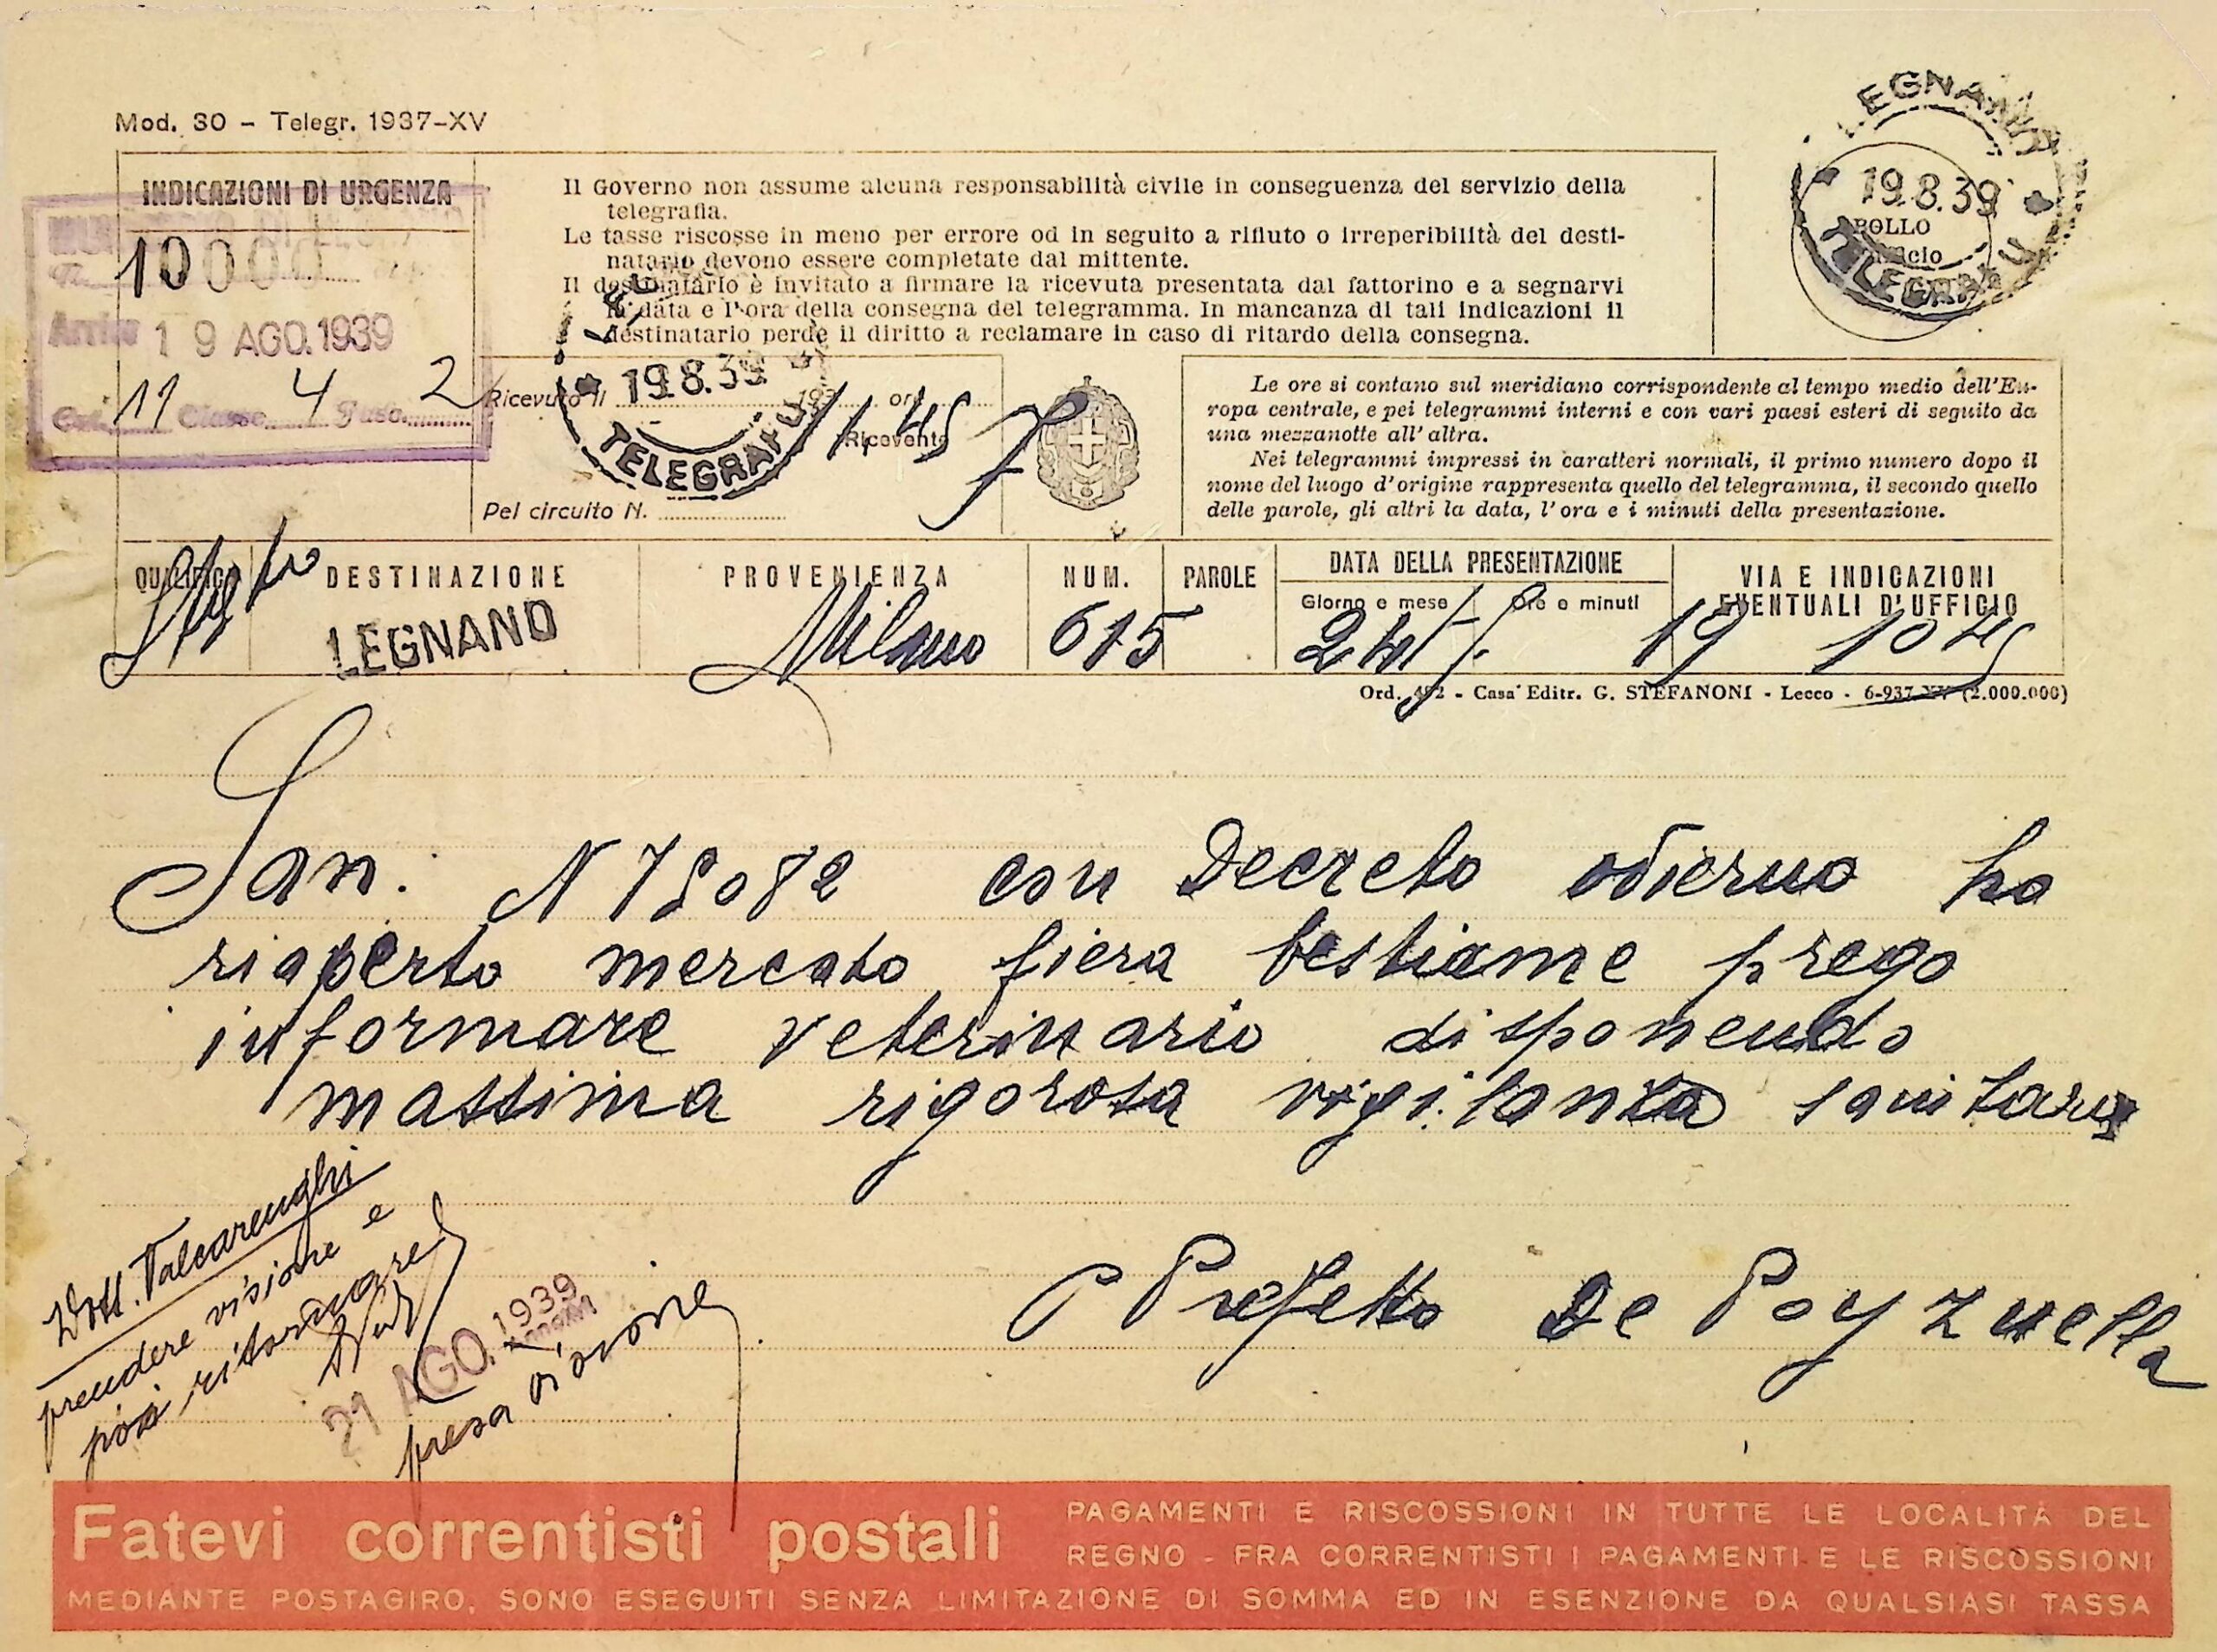 Mod. 30 - Telegr. 1937-XV
INDICAZIONI DI URGENZA
10000
Arrivo 19 AGO. 1939
Cat. 11 Classe 4 Fasc. 2
Il Governo non assume alcuna responsabilità civile in conseguenza del servizio della
telegrafia.
Le tasse riscosse in meno per errore od in seguito a rifiuto o irreperibilità del desti-
natario devono essere completate dal mittente.
Il destinatario è invitato a firmare la ricevuta presentata dal fattorino e a segnarvi
la data e l'ora della consegna del telegramma. In mancanza di tali indicazioni il
destinatario perde il diritto a reclamare in caso di ritardo della consegna.
LEGNANO
19.8.39
BOLLO
TELEGRAFO
Ricevuto il 193 ore 11,45
19.8.39
Ricevente
TELEGRAFO
Pel circuito N.
Le ore si contano sul meridiano corrispondente al tempo medio dell'Eu-
ropa centrale, e pei telegrammi interni e con vari paesi esteri di seguito da
una mezzanotte all'altra.
Nei telegrammi impressi in caratteri normali, il primo numero dopo il
nome del luogo d'origine rappresenta quello del telegramma, il secondo quello
delle parole, gli altri la data, l'ora e i minuti della presentazione.
QUALIFICA DESTINAZIONE PROVENIENZA NUM. PAROLE DATA DELLA PRESENTAZIONE VIA E INDICAZIONI
Giorno e mese Ore e minuti EVENTUALI D'UFFICIO
LEGNANO Milano 615 19 10 45
Ord. 492 - Casa Editr. G. STEFANONI - Lecco - 6-937-XV (2.000.000)
San: N 75082 con Decreto odierno ho
riaperto mercato fiera bestiame prego
informare veterinario disponendo
massima rigorosa vigilanza sanitaria
P Prefetto De Poyzuella
Dott. Talcarenghi
prendere visione e
poi ritornare
21 AGO. 1939
presa visione
Fatevi correntisti postali
PAGAMENTI E RISCOSSIONI IN TUTTE LE LOCALITÀ DEL
REGNO - FRA CORRENTISTI I PAGAMENTI E LE RISCOSSIONI
MEDIANTE POSTAGIRO, SONO ESEGUITI SENZA LIMITAZIONE DI SOMMA ED IN ESENZIONE DA QUALSIASI TASSA